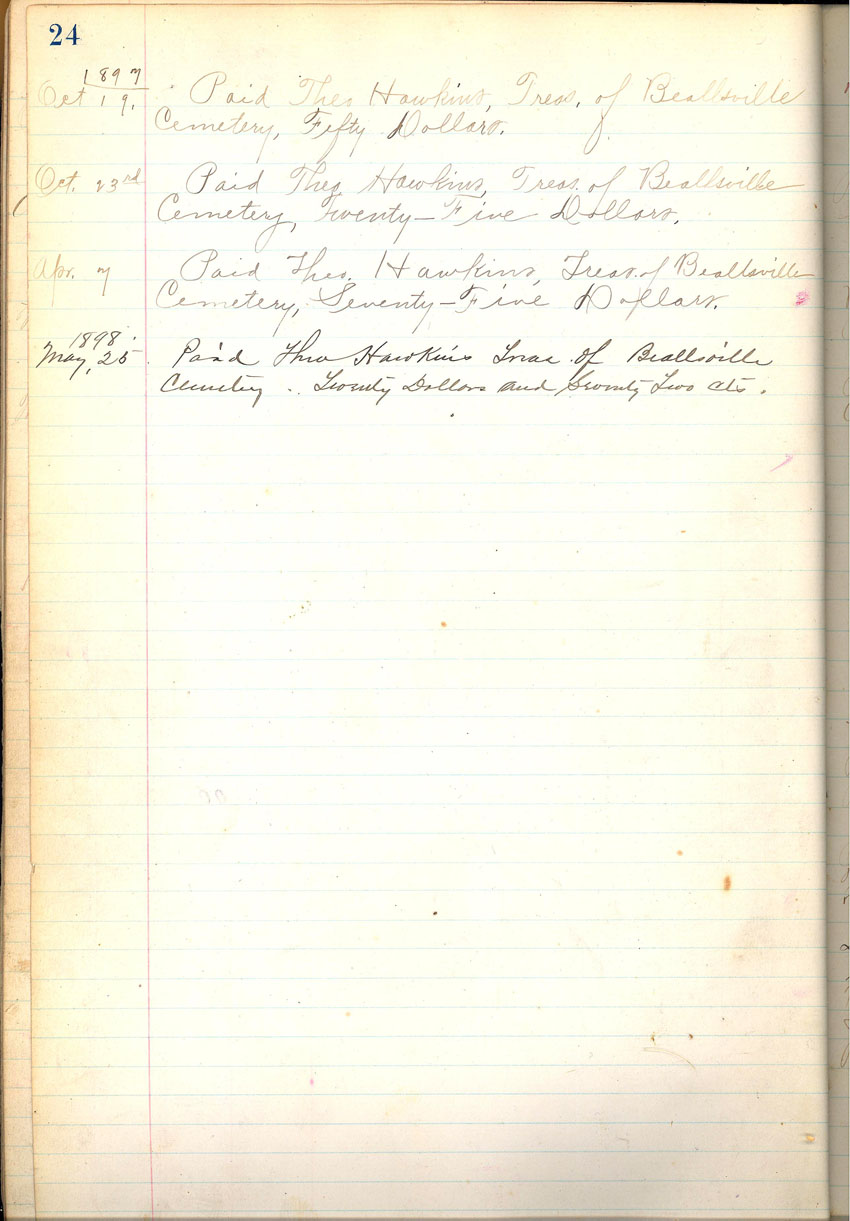 24
1897
Oct 19. Paid Theo Hawkins, Treas. of Beallsville
Cemetery, Fifty Dollars.
Oct. 23rd Paid Theo Hawkins, Treas. of Beallsville
Cemetery, Twenty-Five Dollars.
Apr. 7 Paid Theo. Hawkins, Treas. of Beallsville
Cemetery, Seventy-Five Dollars.
1898.
May, 25. Paid Theo Hawkins Treas. of Beallsville
Cemetery .. Twenty Dollars and Seventy Two cts.